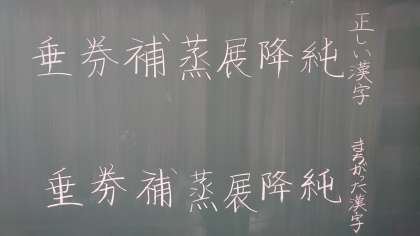 正しい漢字
純降展蒸補券垂
まちがった漢字
純降展蒸補券垂